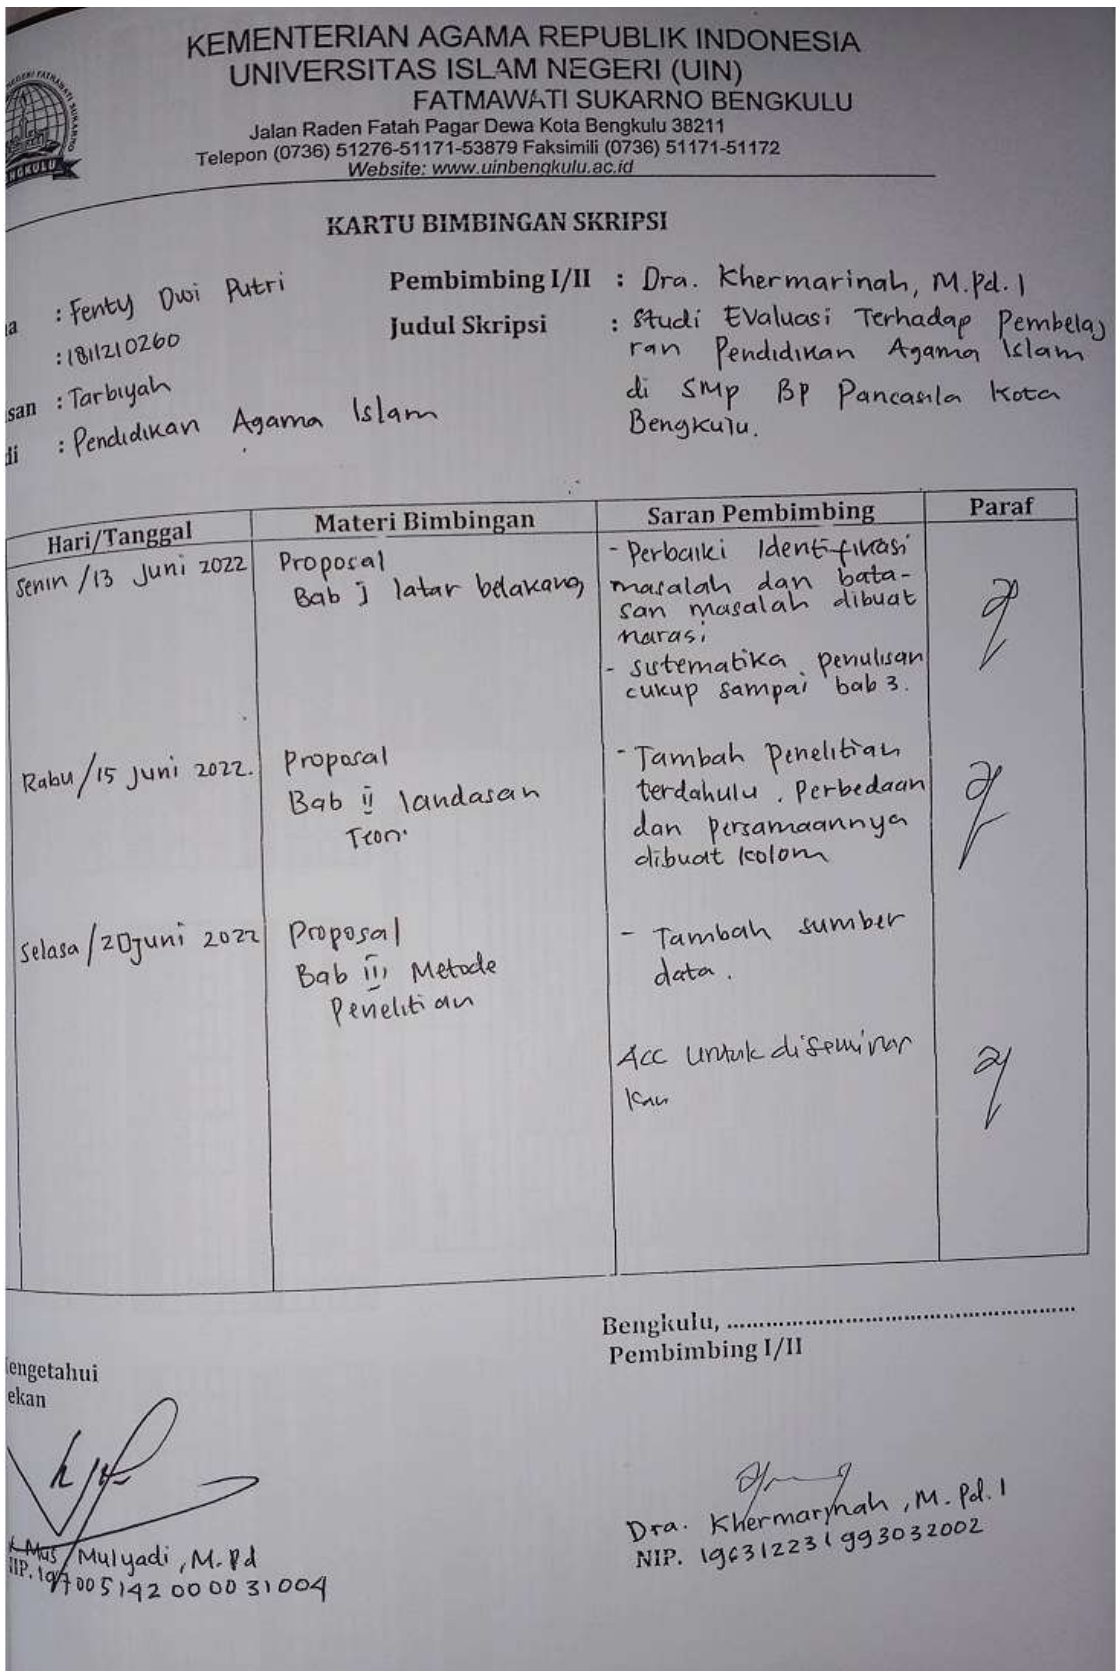 KEMENTERIAN AGAMA REPUBLIK INDONESIA
UNIVERSITAS ISLAM NEGERI (UIN)
FATMAWATI SUKARNO BENGKULU
Jalan Raden Fatah Pagar Dewa Kota Bengkulu 38211
Telepon (0736) 51276-51171-53879 Faksimili (0736) 51171-51172
Website: www.uinbengkulu.ac.id
KARTU BIMBINGAN SKRIPSI
a : Fenty Dwi Putri
: 1811210260
san : Tarbiyah
di : Pendidikan Agama Islam
Pembimbing I/II : Dra. Khermarinah, M.Pd.I
Judul Skripsi : Studi Evaluasi Terhadap Pembelaj
ran Pendidikan Agama Islam
di SMP BP Pancasila Kota
Bengkulu.
Hari/Tanggal Materi Bimbingan Saran Pembimbing Paraf
Senin /13 Juni 2022
Proposal
Bab I latar belakang
- Perbaiki Identifikasi
masalah dan bata-
san masalah dibuat
narasi
- Sistematika penulisan
cukup sampai bab 3.
Rabu /15 Juni 2022.
Proposal
Bab II landasan
Teori
- Tambah Penelitian
terdahulu. Perbedaan
dan persamaannya
dibuat kolom
Selasa /20 Juni 2022
Proposal
Bab III Metode
Penelitian
- Tambah sumber
data.
Acc untuk diseminar
kan
Bengkulu, ....................
Pembimbing I/II
engetahui
ekan
Mus Mulyadi, M.Pd
NIP. 197005142000031004
Dra. Khermarinah, M.Pd.I
NIP. 196312231993032002